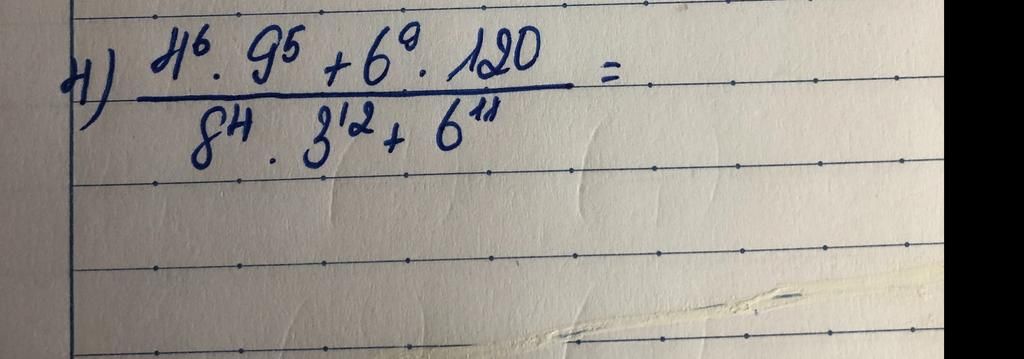 4) 4⁶ · 9⁵ + 6⁹ · 120 =
8⁴ · 3¹² + 6¹¹